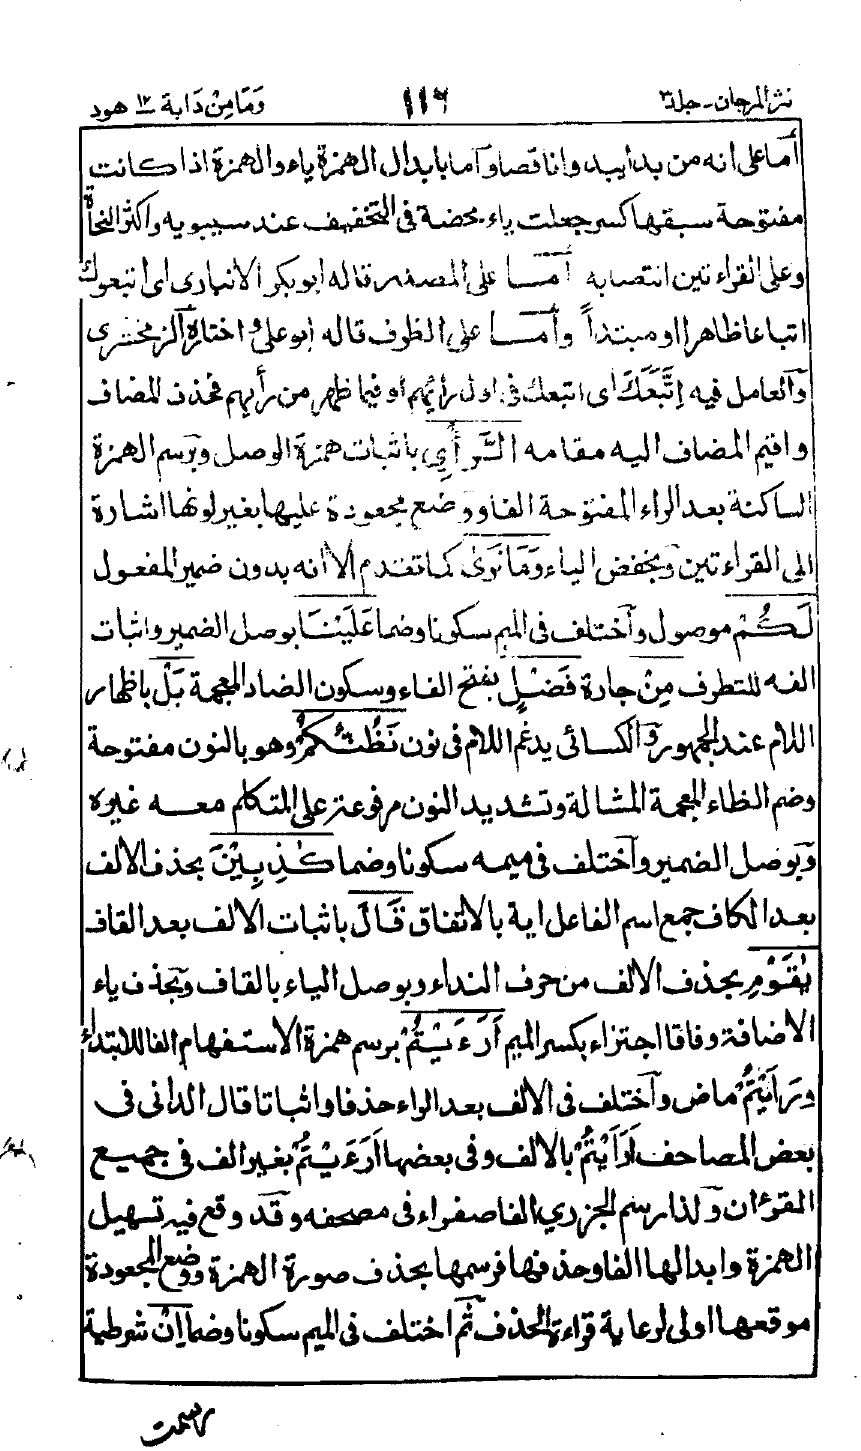 نثر المرجان - جلد ٣ ١١٦ وَمَا مِنْ دَابة ١٢ هود
أما على انه من بدا يبدو انا قصا وَاما بابدال الهمزة ياء والهمزة اذا كانت
مفتوحة سبقها كسر جعلت ياء محضة فى التخفيف عند سيبويه واكثر النحاة
وعلى القراءتين انتصابه أمَّا على المصدر قاله ابو بكر الانبارى اى اتبعوك
اتباعا ظاهرا او مبتدأً وأمَّا على الظرف قاله ابو على و اختاره الزمخشرى
وَالعامل فيه اِتَّبَعَكَ اى اتبعك فى اول رأيهم او فيما ظهر من رأيهم فحذف المضاف
و اقيم المضاف اليه مقامه الرَّأْيِ باثبات همزة الوصل وبرسم الهمزة
الساكنة بعد الراء المفتوحة الفا ووضع مجعودة عليها بغير لونها اشارة
الى القراءتين وبخفض الياء وَمَا نَرٰى كما تقدم الا انه بدون ضمير المفعول
لَكُمْ موصول وآختلف فى الميم سكونا وضما عَلَيْنَا بوصل الضمير واثبات
الفه للتطرف مِنْ جارة فَضْلٍ بفتح الفاء وسكون الضاد المعجمة بَلْ باظهار
اللام عند الجمهور وَالكسائى يدغم اللام فى نون نَظُنُّكُمْ وهو بالنون مفتوحة
وضم الظاء المعجمة المشالة وتشديد النون مرفوعة على المتكلم معه غيره
وَبوصل الضمير وآختلف فى ميمه سكونا وضما كٰذِبِيْنَ بحذف الالف
بعد الكاف جمع اسم الفاعل اية بالاتفاق قَالَ باثبات الالف بعد القاف
يٰقَوْمِ بحذف الالف من حرف النداء وبوصل الياء بالقاف وبحذف ياء
الاضافة وفاقا اجتزاء بكسر الميم اَرَءَيْتُمْ برسم همزة الاستفهام الفا للابتداء
وَرَاَيْتُمْ ماض وآختلف فى الالف بعد الراء حذفا واثباتا قال الدانى فى
بعض المصاحف اَرَاَيْتُمْ بالالف وفى بعضها اَرَءَيْتُمْ بغير الف فى جميع
القرءان وَلذا رسم الجزري الفا صفراء فى مصحفه وقَد وقع فيه تسهيل
الهمزة وابدالها الفا وحذفها فرسمها بحذف صورة الهمزة ووضع المجعودة
موقعها اولى لرعاية قراءة الحذف ثم اختلف فى الميم سكونا وضما اِنْ شرطية
رسمت